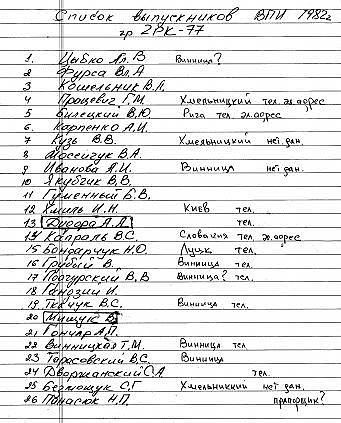 Список выпускников ВПИ 1982г
гр 2РК-77
1. Цыбко Ал. В Винница?
2 Фурса Вл. А
3 Кошельник В.А.
4 Процевич Г.М. Хмельницкий тел. эл. адрес
5 Билецкий В.Ю. Рига тел. эл. адрес
6. Карпенко А.И.
7 Кузь В.В. Хмельницкий нет дан.
8 Мосейчук В.А.
9 Иванова Л.И. Винница нет дан.
10 Якубчик В.В.
11 Гуменный Б.В.
12 Хмиль И.Н. Киев тел.
13 А.А. тел.
14 Капраль В.С. Словакия тел. эл. адрес
15 Бондарчук Н.Ю. Луцк тел.
16 В. Винница тел.
17 Подгурский В.В Винница? тел.
18 И.
19 Ткачук В.С. Винница тел.
20 Мищук В.
21 Гончар А.П.
22 Винницкая Т.М. Винница тел
23 Тарасовский В.С. Винница
24 Дворжанский С.А тел.
25 С.Г Хмельницкий нет дан.
26 Панасюк Н.П. прапорщик?